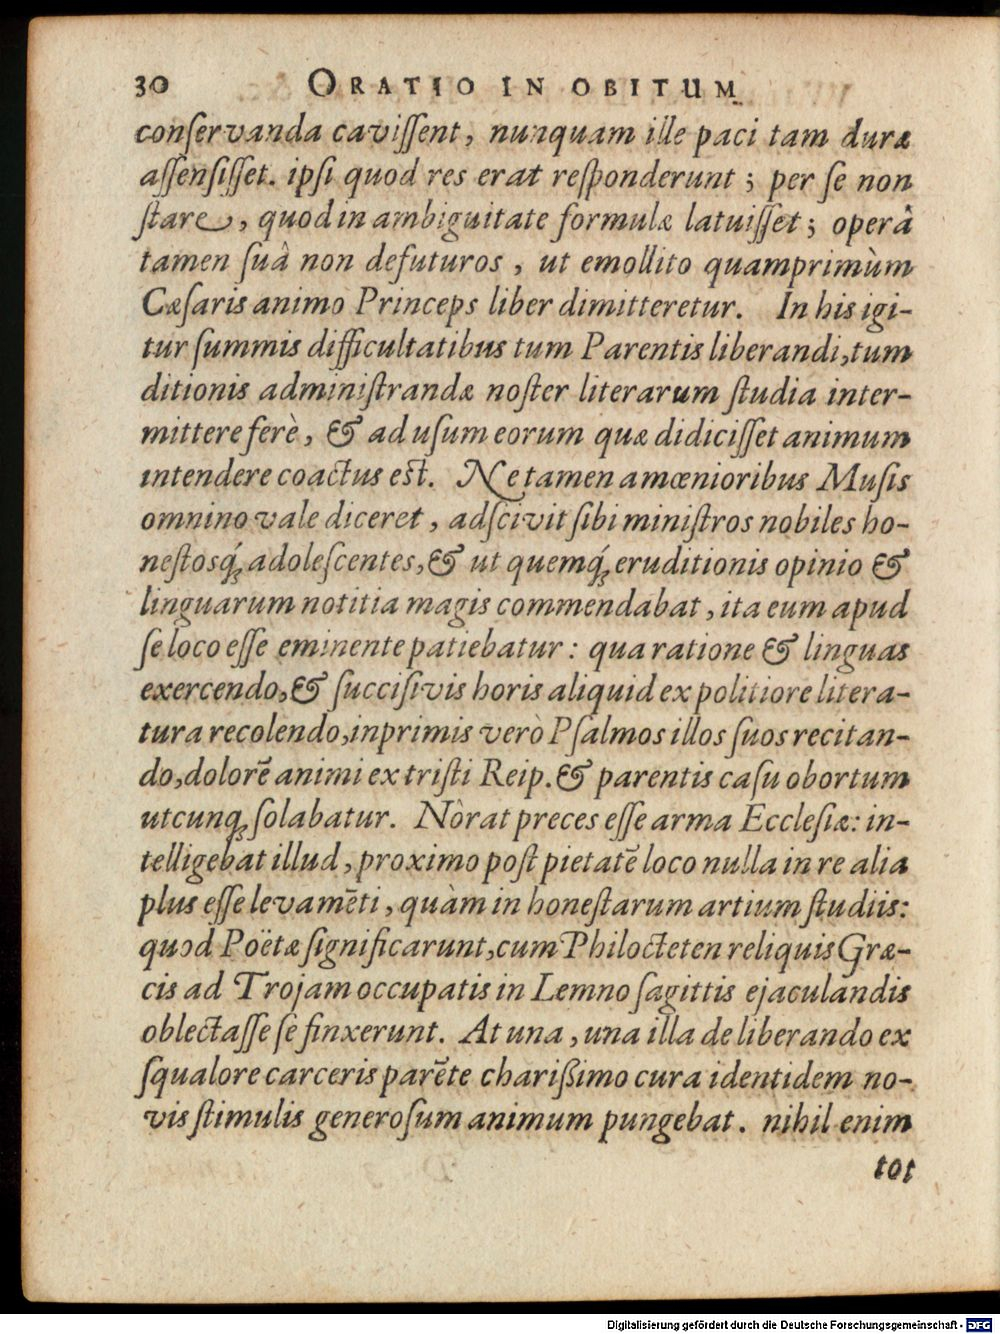 30 ORATIO IN OBITUM
conſervanda caviſſent, nunquam ille paci tam duræ
aſſenſiſſet. ipſi quod res erat reſponderunt; per ſe non
ſtare, quod in ambiguitate formulæ latuiſſet; operâ
tamen ſuâ non defuturos, ut emollito quamprimùm
Cæſaris animo Princeps liber dimitteretur. In his igi-
tur ſummis difficultatibus tum Parentis liberandi, tum
ditionis adminiſtrandæ noſter literarum ſtudia inter-
mittere ferè, & ad uſum eorum quæ didiciſſet animum
intendere coactus eſt. Ne tamen amœnioribus Muſis
omnino vale diceret, adſcivit ſibi miniſtros nobiles ho-
neſtosq́; adoleſcentes, & ut quemq́; eruditionis opinio &
linguarum notitia magis commendabat, ita eum apud
ſe loco eſſe eminente patiebatur: qua ratione & linguas
exercendo, & ſucciſivis horis aliquid ex politiore litera-
tura recolendo, inprimis verò Pſalmos illos ſuos recitan-
do, dolorē animi ex triſti Reip. & parentis caſu obortum
utcunq; ſolabatur. Nòrat preces eſſe arma Eccleſiæ: in-
telligebat illud, proximo poſt pietatē loco nulla in re alia
plus eſſe levamēti, quàm in honeſtarum artium ſtudiis:
quod Poëtæ ſignificarunt, cum Philocteten reliquis Græ-
cis ad Trojam occupatis in Lemno ſagittis ejaculandis
oblectaſſe ſe finxerunt. At una, una illa de liberando ex
ſqualore carceris parēte charißimo cura identidem no-
vis ſtimulis generoſum animum pungebat. nihil enim
tot
Digitalisierung gefördert durch die Deutsche Forschungsgemeinschaft - DFG